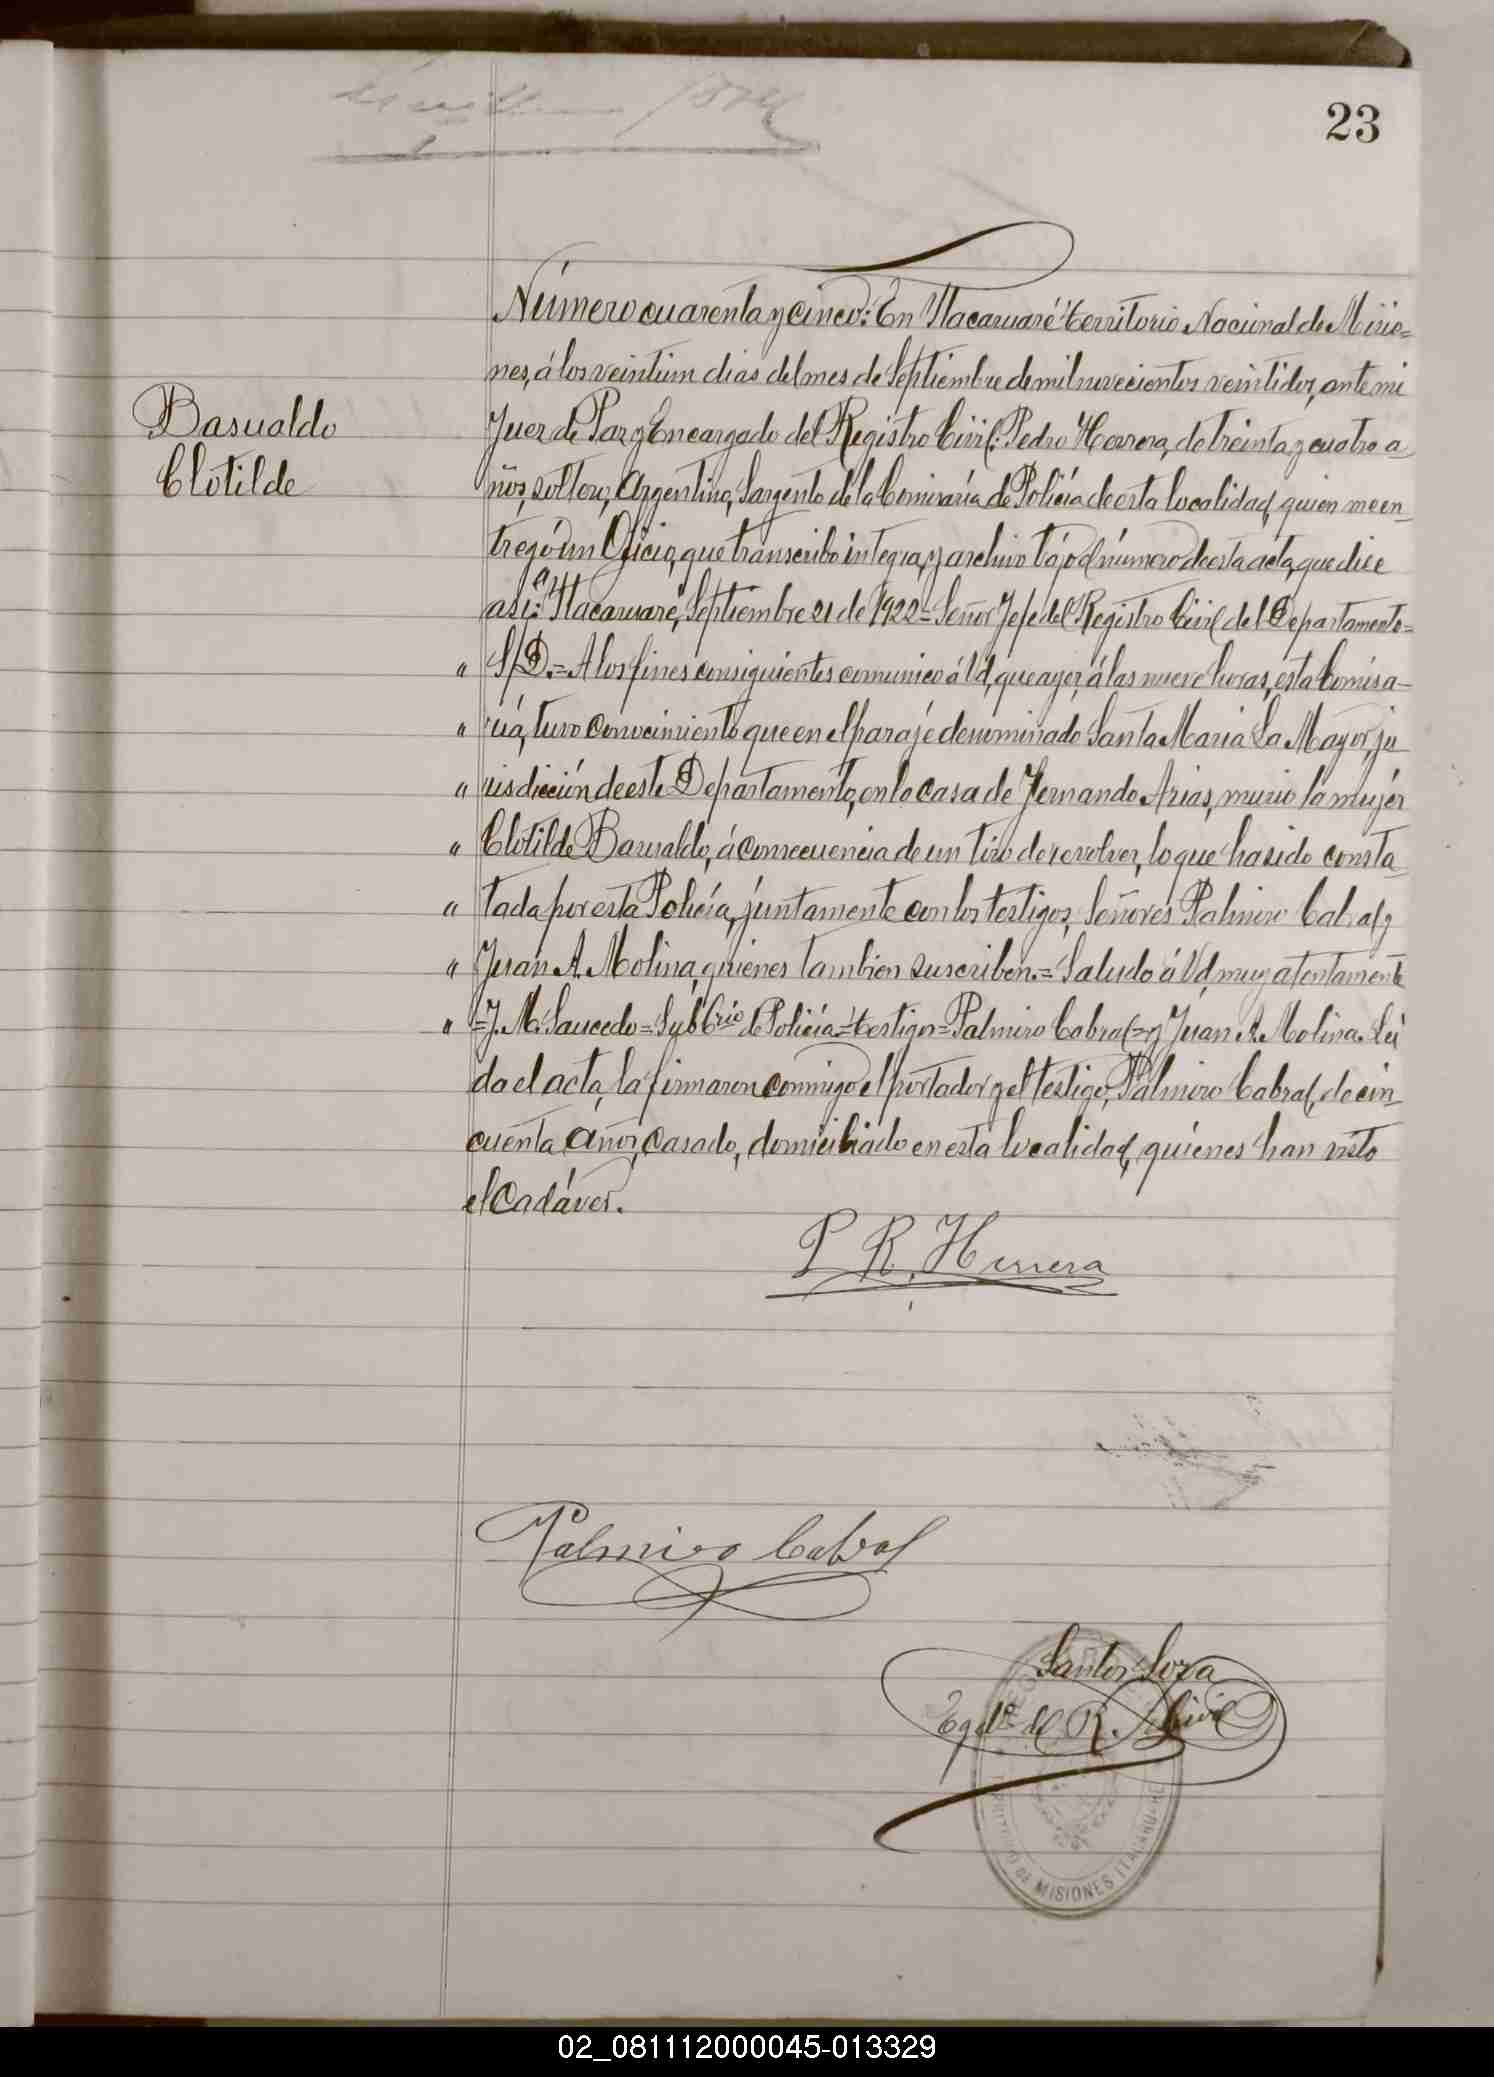 23
Número cuarenta y cinco: En Itacaruaré territorio Nacional de Misio=
nes, á los veintiun dias del mes de Septiembre de mil nuvecientos veintidos, ante mi
Basualdo
Clotilde
Juez de Paz y Encargado del Registro Civil: Pedro Herrera, de treinta y cuatro a-
ños, soltero, Argentino, Sargento de la Comisaría de Policía de esta localidad, quien me en-
tregó un Oficio, que transcribo integra, y archivo bájo el número de esta acta, que dice
asi: "Itacaruaré, Septiembre 21 de 1922= Señor Jefe del Registro Civil del Departamento=
" S/D.= A los fines consiguientes comunico á Vd, que ayer, á las nueve horas, esta Comisa-
" ría, tuvo conocimiento que en el paraje denominado Santa Maria La Mayor, ju
" risdicción de este Departamento, en la casa de Fernando Arias, murio la mujér
" Clotilde Basualdo, á consecuencia de un tiro de revolver, lo que ha sido consta
" tada por esta Policía, juntamente con los testigos, Señores Palmiro Cabral y
" Juan A. Molina, quienes tambien suscriben.= Saludo á Vd, muy atentamente
" =J. M. Saucedo= Sub Crio de Policía= testigos= Palmiro Cabral= y Juan A. Molina. Leí
da el acta, la firmaron conmigo el portador y el testigo, Palmiro Cabral, de cin-
cuenta años, casado, domiciliado en esta localidad, quienes han visto
el cadáver.
P R. Herrera
Palmiro Cabral
Santos Soza
Egdo del R. Civil
TERRITORIO DE MISIONES ITACARUARE
02_081112000045-013329